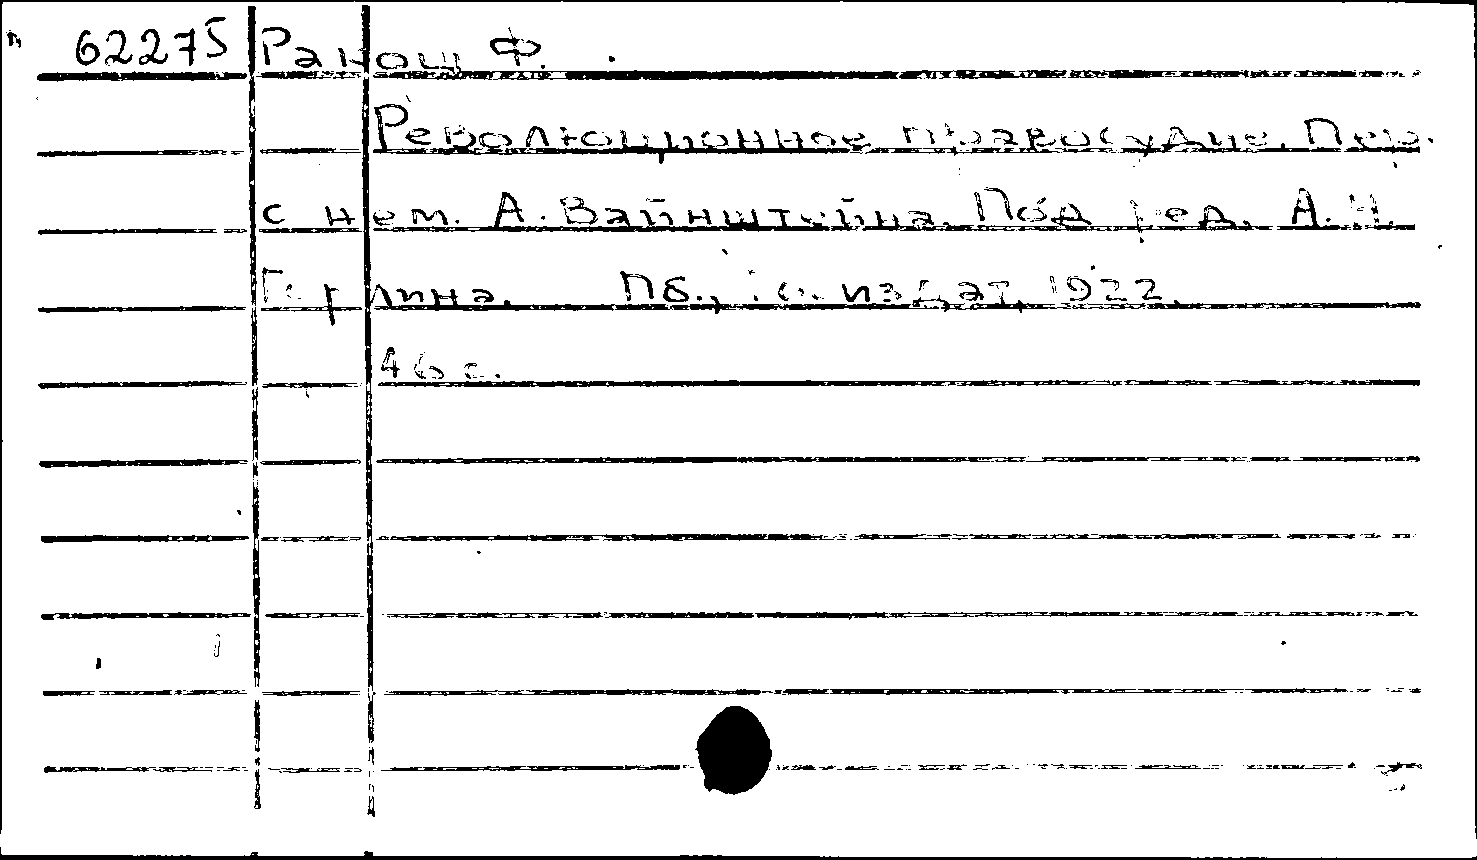 62275 Ракош Ф.
Революционное правосудие. Пер.
с нем. А. Вайнштейна. Под ред. А. Н.
Горлина. Пб., Госиздат, 1922.
46 с.